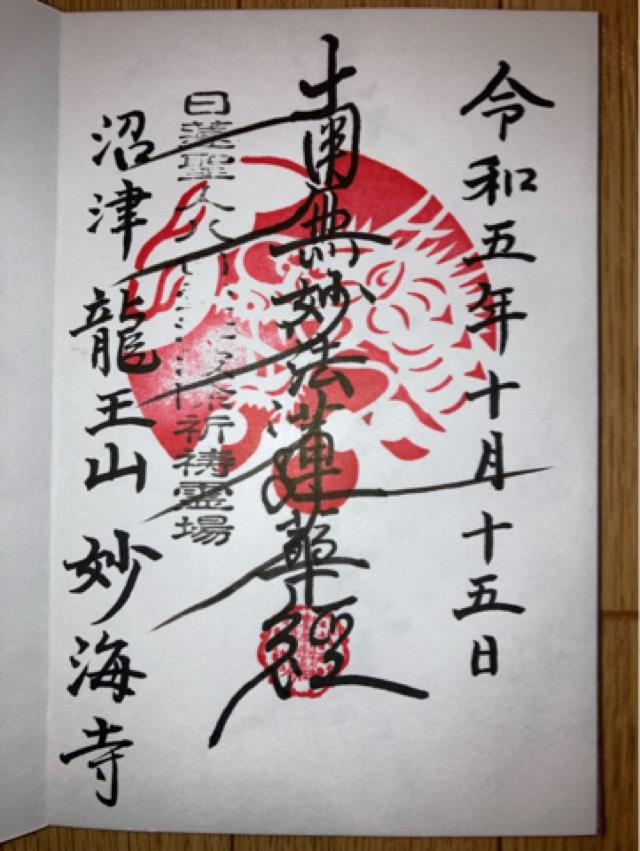 令和五年十月十五日
南無妙法蓮華経
日蓮聖人
祈祷霊場
沼津 龍王山 妙海寺